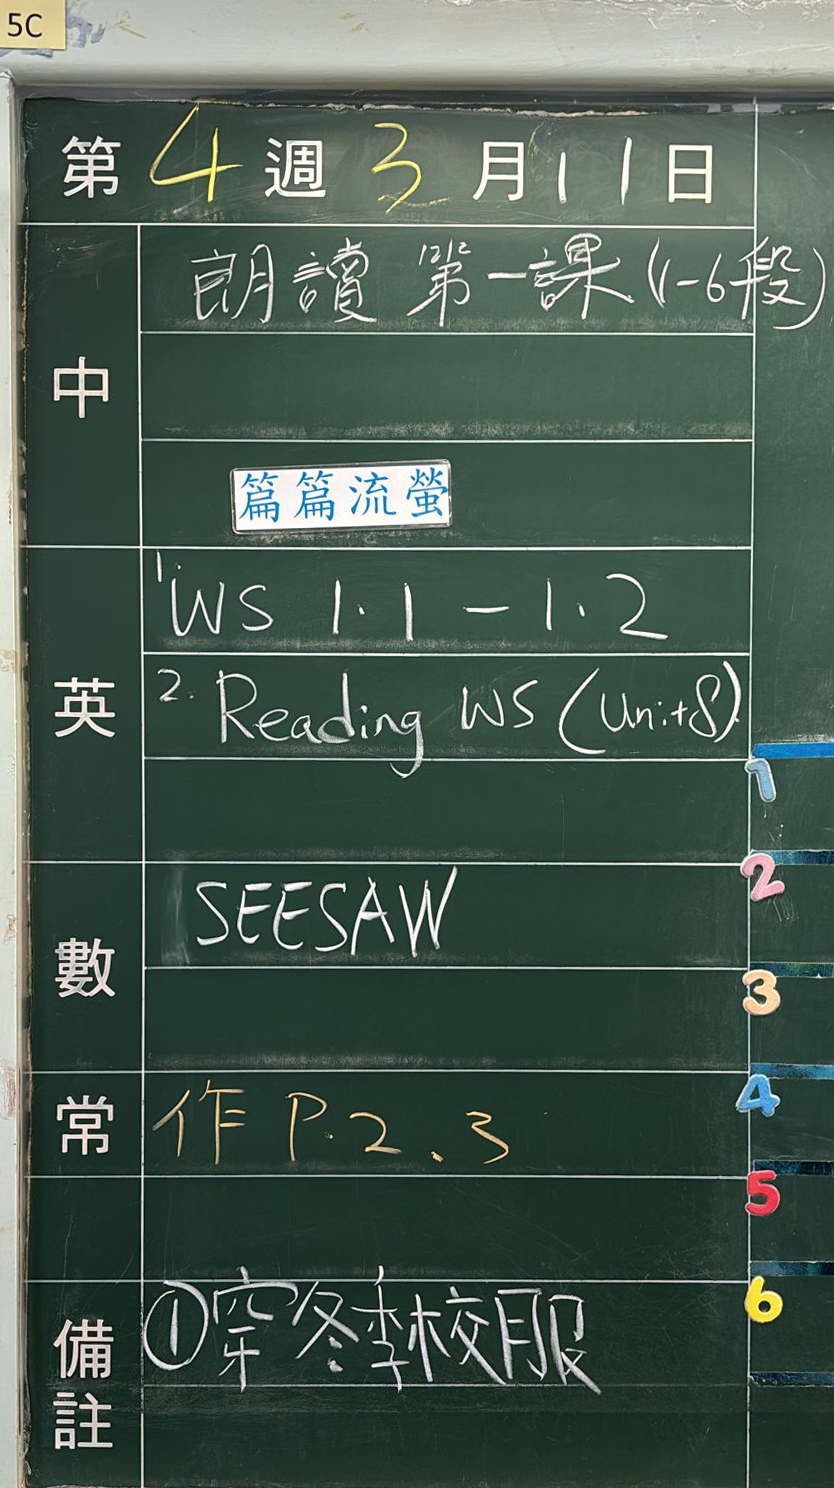 5C
第 4 週 3 月 11 日
中
朗讀 第一課 (1-6段)
篇篇流螢
英
1. WS 1.1 - 1.2
2. Reading WS (Unit 8)
數
SEESAW
常
作 P.2、3
備註
①穿冬季校服
1
2
3
4
5
6